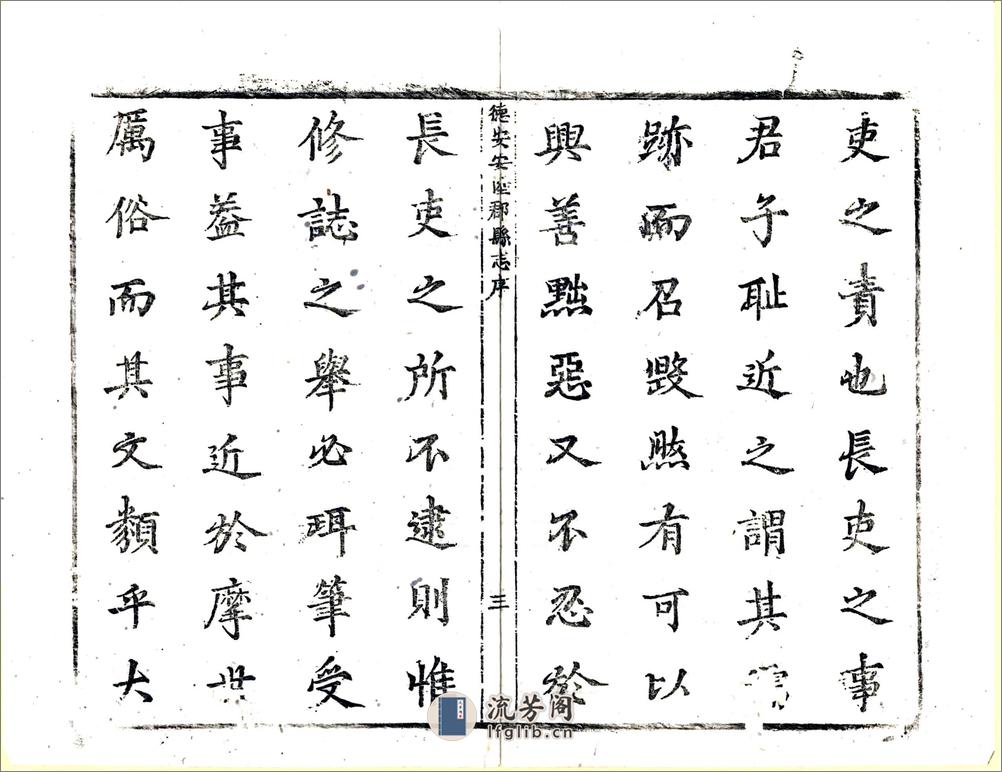 吏之責也長吏之事
君子恥近之謂其
跡而召毀然有可以
興善黜惡又不忍於
德安安陸郡縣志序
三
長吏之所不逮則惟
修誌之舉必珥筆受
事葢其事近於摩世
厲俗而其文類乎大
流芳阁
lfglib.cn